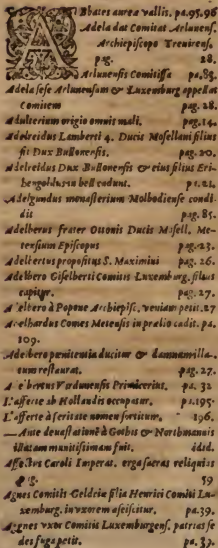 Abbates aurea vallis. pa.95.96
Adela dat Comitat Arlunens.
Archiepiscopo Treuirens.
pag. 28.
Arlunensis Comitissa pa,83.
Adela sese Arlunensam & Luxemburg appellat
Comitem pag. 28.
Adulterium origio omnis mali. pag.14.
Adelreidus Lamberti 4. Ducis Mosellani filius
fit Dux Bullonensis. pag. 20.
Adelreidus Dux Bullonensis & eius filius Eri-
bergoldus in bell cadunt. p1.21.
Adelgundus monasterium Molbodiense condi-
dit pag. 85.
Adelberus frater Ottonis Ducis Mosell. Me-
tensium Episcopus pag.23.
Adelbertus propositus S. Maximini pag. 26.
Adelbero Giselberti Comitis Luxemburg. filius
capitur. pag. 27.
A elbero à Popone Archiepisc. veniam petit.27
Adelhardus Comes Metensis in pralio cadit. pa,
109.
Adelbero penitentia ducitur & damna milla.
tum restaurat. pag. 27.
A e berus Verdunensis Primicerius. pa. 32
L'afferte ab Hollandis occupatur. p1.195.
L'afferte à feritate nomen sortitum. 196.
— Ante deuastationē à Gothis & Northmanuis
illatam munitissimam fuit. ibid.
Affectus Caroli Imperat. erga sacras reliquias
pag. 59
Agnes Comitis Geldria filia Henrici Comiti Lu-
xemburg. in vxorem asciscitur, pa.39.
Agnes vxor Comitis Luxemburgens. patrias se-
des fuga petit. pa. 39.